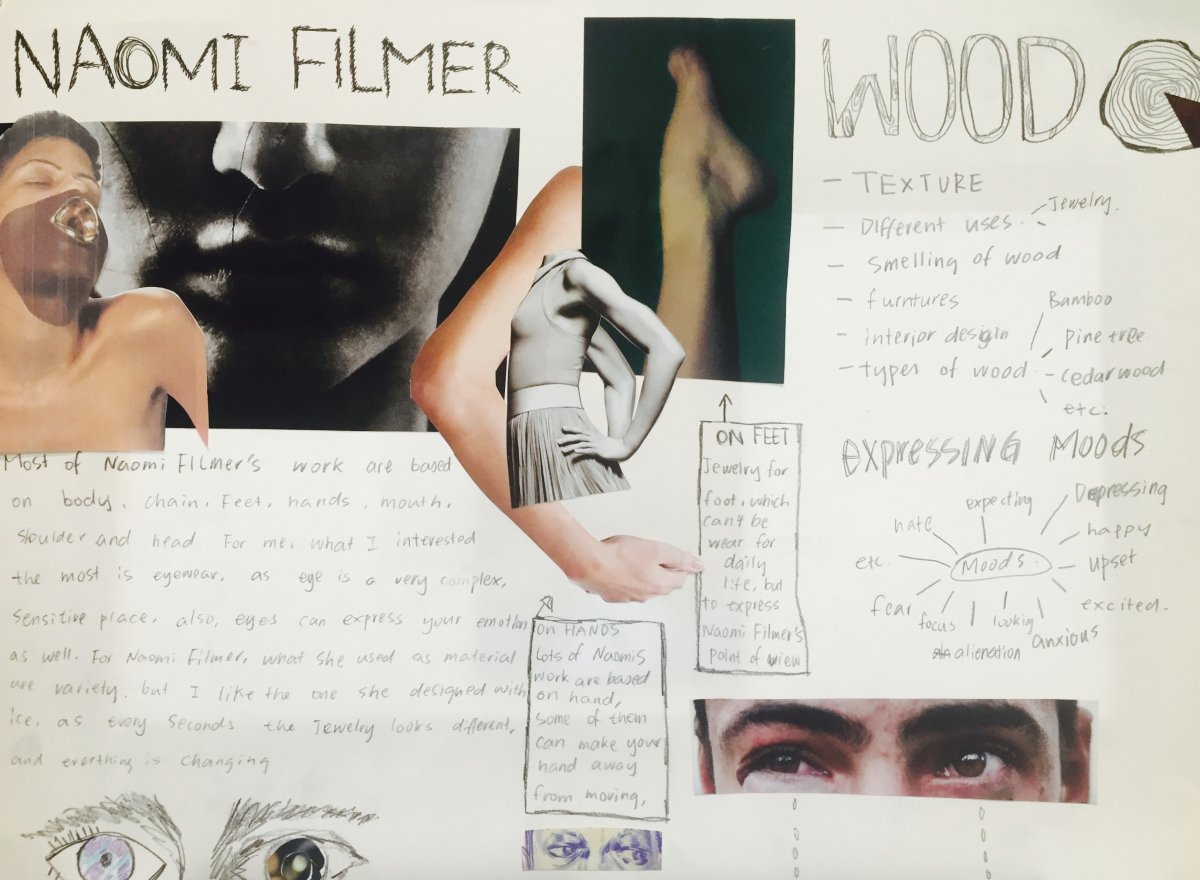 NAOMI FILMER
Most of Naomi Filmer's work are based
on body, chain, Feet, hands, mouth,
shoulder and head. For me, what I interested
the most is eyewear, as eye is a very complex,
sensitive place, also, eyes can express your emotion
as well. For Naomi Filmer, what she used as material
are variety, but I like the one she designed with
ice, as every seconds the Jewelry looks different,
and everthing is changing
on HANDS
Lots of Naomis
work are based
on hand,
some of them
can make your
hand away
from moving,
ON FEET
Jewelry for
foot, which
can't be
wear for
daily
life, but
to express
Naomi Filmer's
point of view
WOOD
- TEXTURE
- Different uses
Jewelry.
- Smelling of wood
- furntures
- interior design
- types of wood
Bamboo
pine tree
- cedar wood
etc.
expressing Moods
Moods.
expecting
Depressing
happy
upset
excited
anxious
looking
alienation
focus
fear
etc.
hate